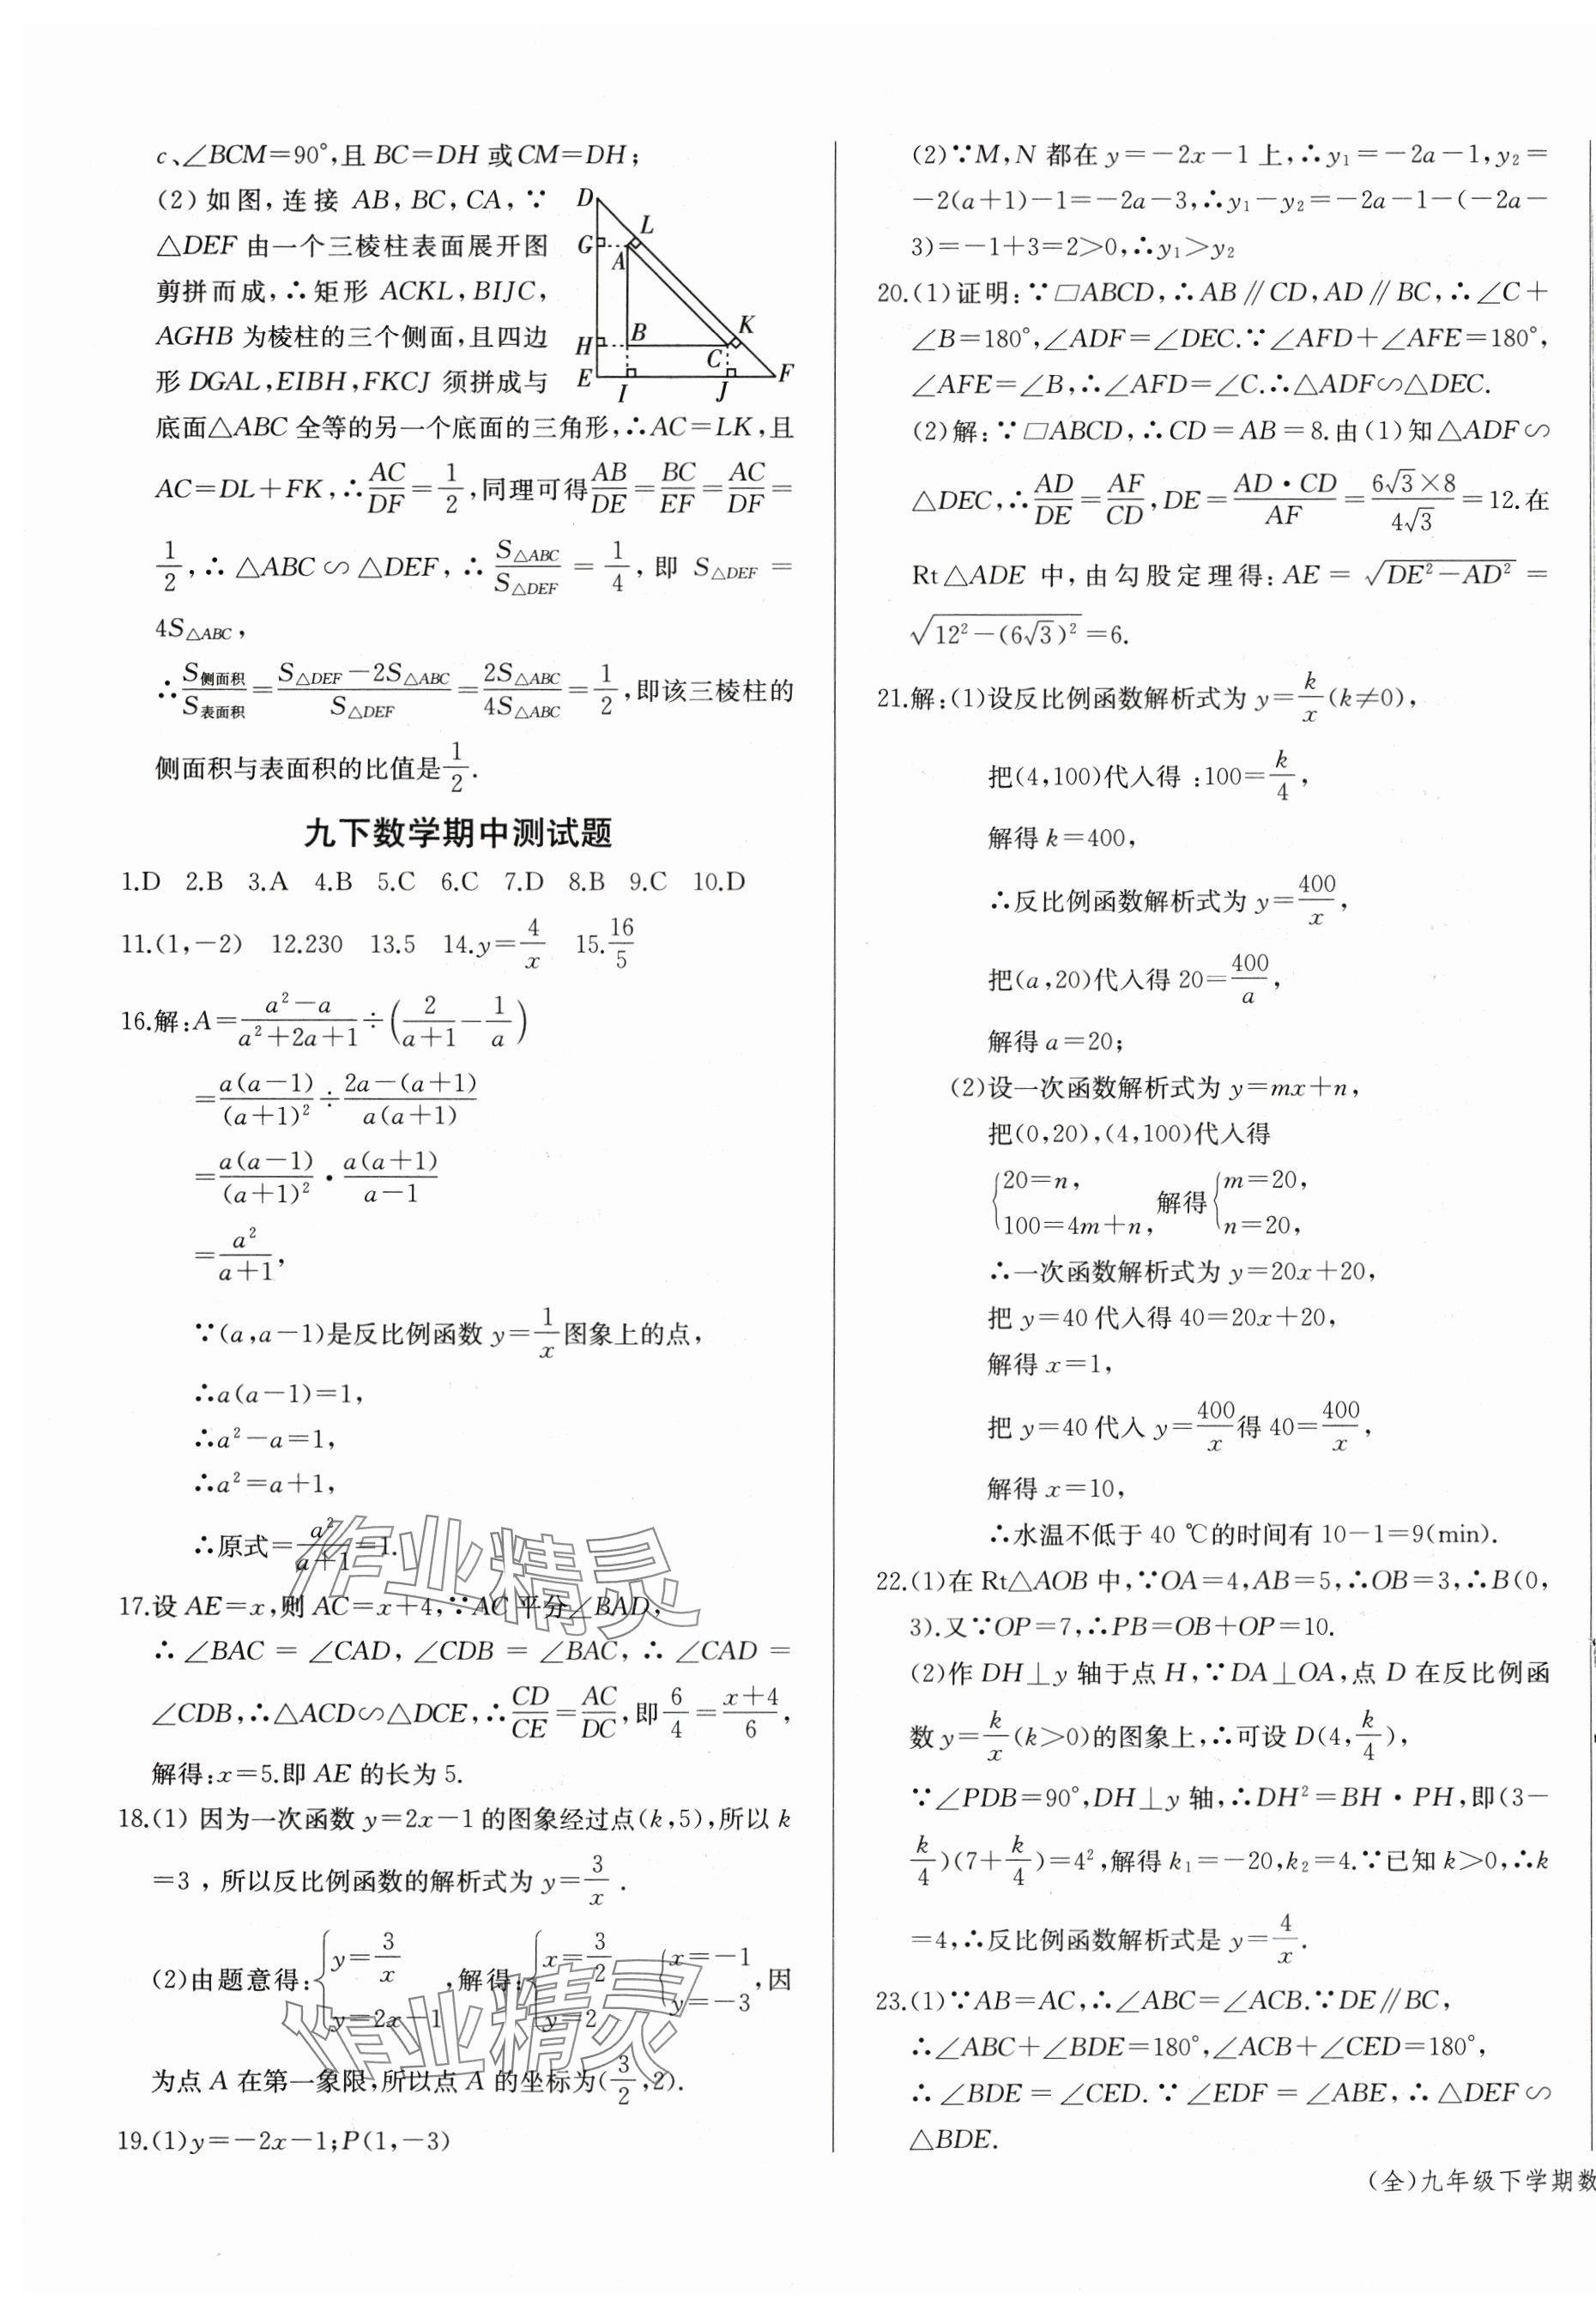 c、∠BCM=90°,且 BC=DH 或CM=DH;
(2)如图,连接 AB,BC,CA,∵
△DEF 由一个三棱柱表面展开图
剪拼而成,∴矩形 ACKL,BIJC,
AGHB 为棱柱的三个侧面,且四边
形 DGAL,EIBH,FKCJ 须拼成与
D
L
G
A
K
H
B
C
E
I
J
F
底面△ABC 全等的另一个底面的三角形,∴AC=LK,且
AC=DL+FK,∴AC/DF=1/2,同理可得AB/DE=BC/EF=AC/DF=
1/2,∴△ABC∽△DEF,∴S△ABC/S△DEF=1/4,即 S△DEF=
4S△ABC,
∴S侧面积/S表面积=(S△DEF−2S△ABC)/S△DEF=2S△ABC/4S△ABC=1/2,即该三棱柱的
侧面积与表面积的比值是1/2.
九下数学期中测试题
1.D 2.B 3.A 4.B 5.C 6.C 7.D 8.B 9.C 10.D
11.(1,−2) 12.230 13.5 14.y=4/x 15.16/5
16.解:A=(a²−a)/(a²+2a+1)÷(2/(a+1)−1/a)
=a(a−1)/(a+1)²÷(2a−(a+1))/a(a+1)
=a(a−1)/(a+1)²·a(a+1)/(a−1)
=a²/(a+1),
∵(a,a−1)是反比例函数 y=1/x图象上的点,
∴a(a−1)=1,
∴a²−a=1,
∴a²=a+1,
∴原式=a²/(a+1)=1.
作业精灵
17.设 AE=x,则 AC=x+4,∵AC 平分∠BAD,
∴∠BAC=∠CAD,∠CDB=∠BAC,∴∠CAD=
∠CDB,∴△ACD∽△DCE,∴CD/CE=AC/DC,即6/4=(x+4)/6,
解得:x=5.即 AE 的长为 5.
18.(1) 因为一次函数 y=2x−1 的图象经过点(k,5),所以 k
=3 , 所以反比例函数的解析式为 y=3/x .
(2)由题意得:{y=3/x y=2x−1 ,解得:{x=3/2 y=2 {x=−1 y=−3 ,因
作业精灵
为点 A 在第一象限,所以点 A 的坐标为(3/2,2).
19.(1)y=−2x−1;P(1,−3)
(2)∵M,N 都在 y=−2x−1 上,∴y₁=−2a−1,y₂=
−2(a+1)−1=−2a−3,∴y₁−y₂=−2a−1−(−2a−
3)=−1+3=2>0,∴y₁>y₂
20.(1)证明:∵▱ABCD,∴AB∥CD,AD∥BC,∴∠C+
∠B=180°,∠ADF=∠DEC.∵∠AFD+∠AFE=180°,
∠AFE=∠B,∴∠AFD=∠C.∴△ADF∽△DEC.
(2)解:∵▱ABCD,∴CD=AB=8.由(1)知△ADF∽
△DEC,∴AD/DE=AF/CD,DE=AD·CD/AF=6√3×8/4√3=12.在
Rt△ADE 中,由勾股定理得:AE=√(DE²−AD²)=
√(12²−(6√3)²)=6.
21.解:(1)设反比例函数解析式为 y=k/x(k≠0),
把(4,100)代入得 :100=k/4,
解得 k=400,
∴反比例函数解析式为 y=400/x,
把(a,20)代入得 20=400/a,
解得 a=20;
(2)设一次函数解析式为 y=mx+n,
把(0,20),(4,100)代入得
{20=n, 100=4m+n, 解得{m=20, n=20,
∴一次函数解析式为 y=20x+20,
把 y=40 代入得 40=20x+20,
解得 x=1,
把 y=40 代入 y=400/x得 40=400/x,
解得 x=10,
∴水温不低于 40 ℃的时间有 10−1=9(min).
22.(1)在 Rt△AOB 中,∵OA=4,AB=5,∴OB=3,∴B(0,
3).又∵OP=7,∴PB=OB+OP=10.
(2)作 DH⊥y 轴于点 H,∵DA⊥OA,点 D 在反比例函
数 y=k/x(k>0)的图象上,∴可设 D(4,k/4),
∵∠PDB=90°,DH⊥y 轴,∴DH²=BH·PH,即(3−
k/4)(7+k/4)=4²,解得 k₁=−20,k₂=4.∵已知 k>0,∴k
=4,∴反比例函数解析式是 y=4/x.
23.(1)∵AB=AC,∴∠ABC=∠ACB.∵DE∥BC,
∴∠ABC+∠BDE=180°,∠ACB+∠CED=180°,
∴∠BDE=∠CED.∵∠EDF=∠ABE,∴△DEF∽
△BDE.
(全)九年级下学期数